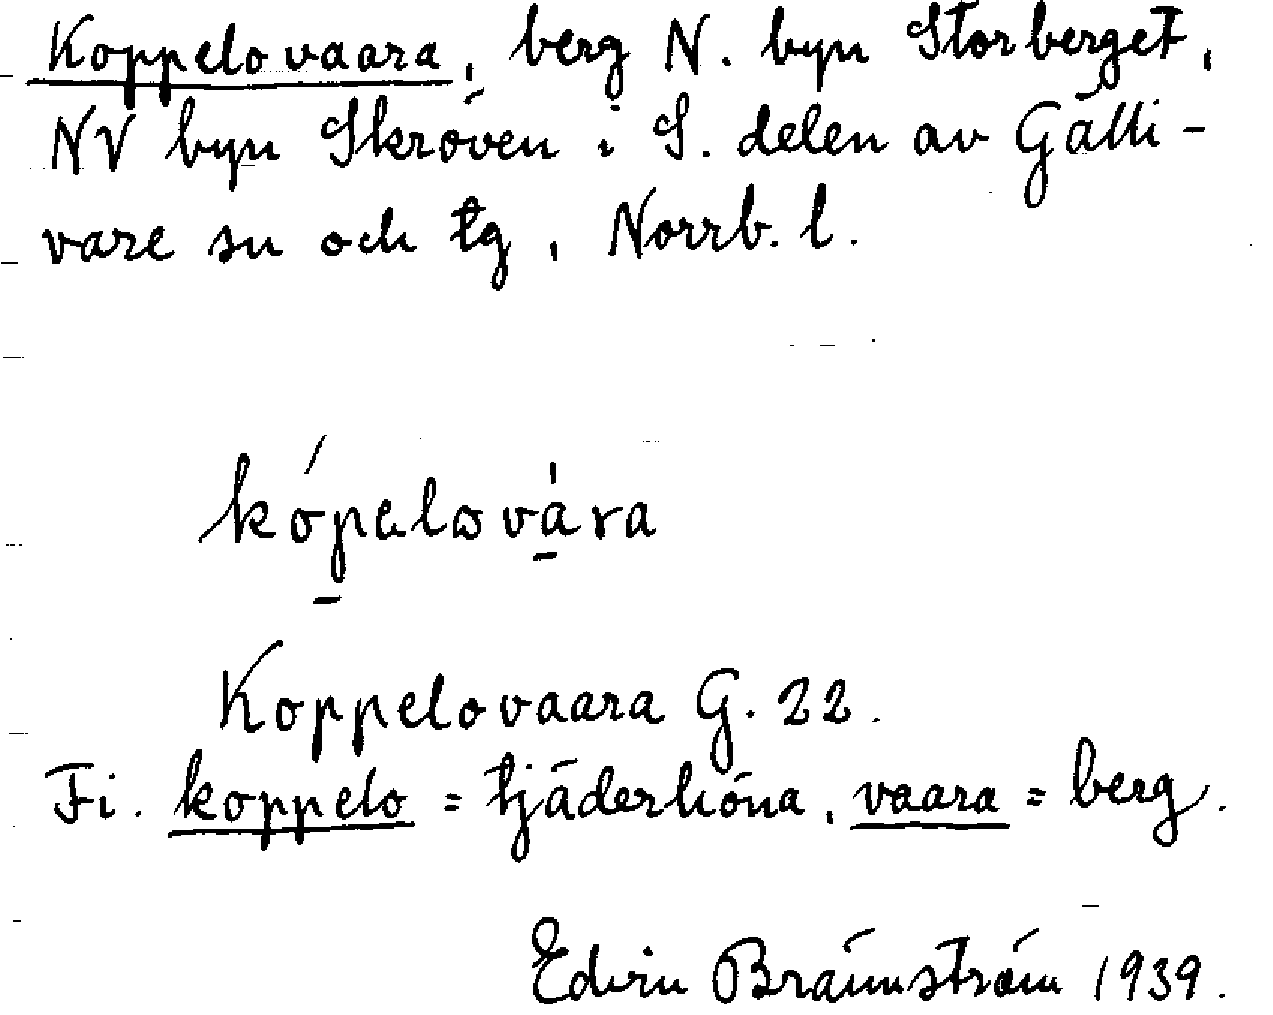 Koppelovaara, berg N. byn Storberget,
NV byn Skröven i S. delen av Gälli-
vare sn och tg, Norrb. l.
kópelovára
Koppelovaara G. 22.
Fi. koppelo = tjäderhöna, vaara = berg.
Edvin Brännström 1939.